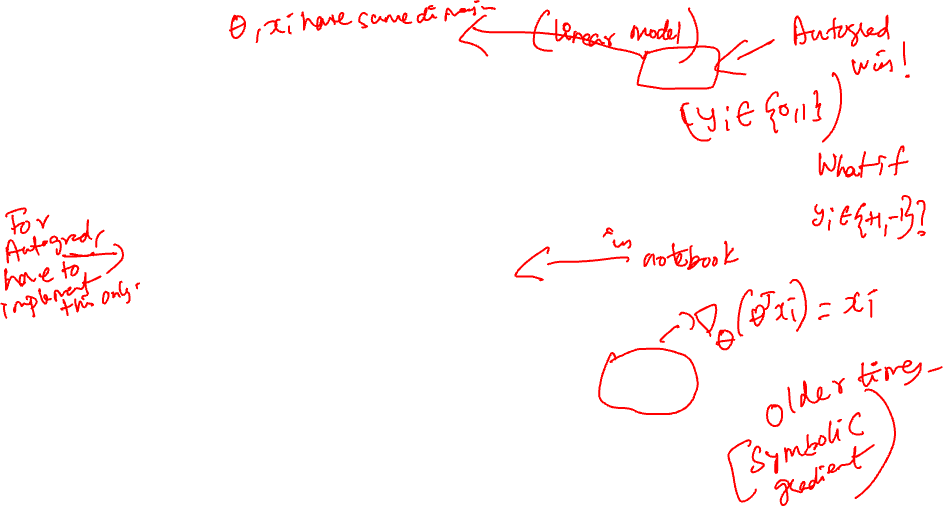 θ, xi have same dimen
(linear model)
Autograd
wins!
(yi ∈ {0,1})
What if
yi ∈ {+1,-1}?
For
Autograd,
have to
implement
this only.
in notebook
∇θ(θᵀxi) = xi
Older times
[Symbolic
gradient]